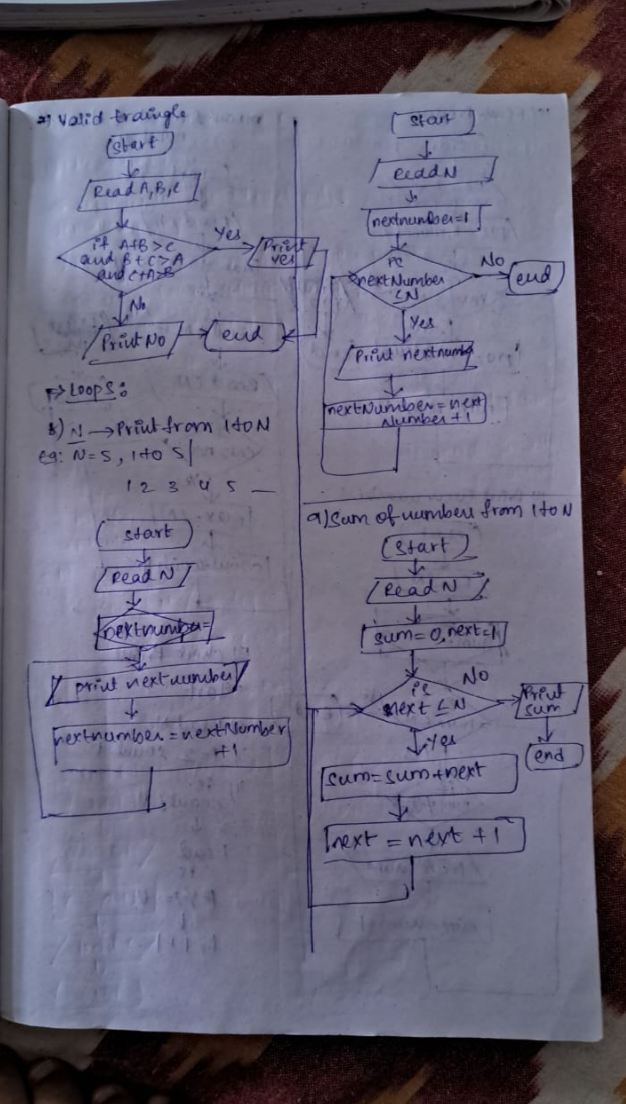 Valid traingle
Start
Read A, B, C
if A+B > C
and B+C>A
and C+A>B
Yes
Print
yes
No
Print No
end
Loops:
N → Print from 1 to N
eg: N=5, 1 to 5
1 2 3 4 5 _
start
Read N
nextnumber=
print nextnumber
nextnumber = nextNumber
+1
Start
Read N
nextnumber=1
nextNumber
≤N
No
end
Yes
Print nextnumb
nextNumber = next
Number + 1
9) Sum of numbers from 1 to N
Start
Read N
sum=0, next=1
is
next ≤ N
No
Print
sum
end
Yes
sum=sum+next
next = next + 1